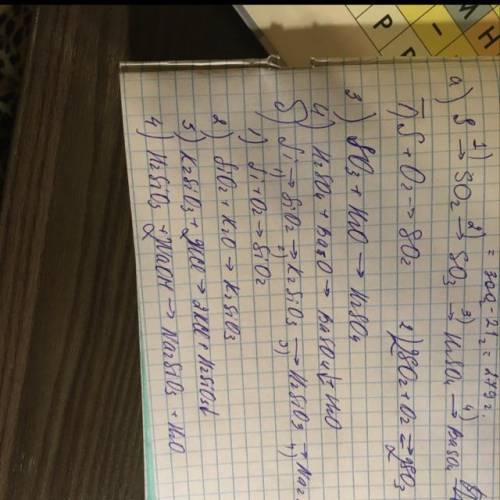 = 300г - 21г = 279г.
а) S 1)→ SO2 2)→ SO3 3)→ H2SO4 4)→ BaSO4
1) S + O2 → SO2 2) 2SO2 + O2 ⇄ 2SO3
3) SO3 + H2O → H2SO4
4) H2SO4 + BaO → BaSO4↓ + H2O
б) Si 1)→ SiO2 2)→ K2SiO3 3)→ H2SiO3 4)→ Na2
1) Si + O2 → SiO2
2) SiO2 + K2O → K2SiO3
3) K2SiO3 + 2HCl → 2KCl + H2SiO3↓
4) H2SiO3 + 2NaOH → Na2SiO3 + H2O
И
Н
Р
Г